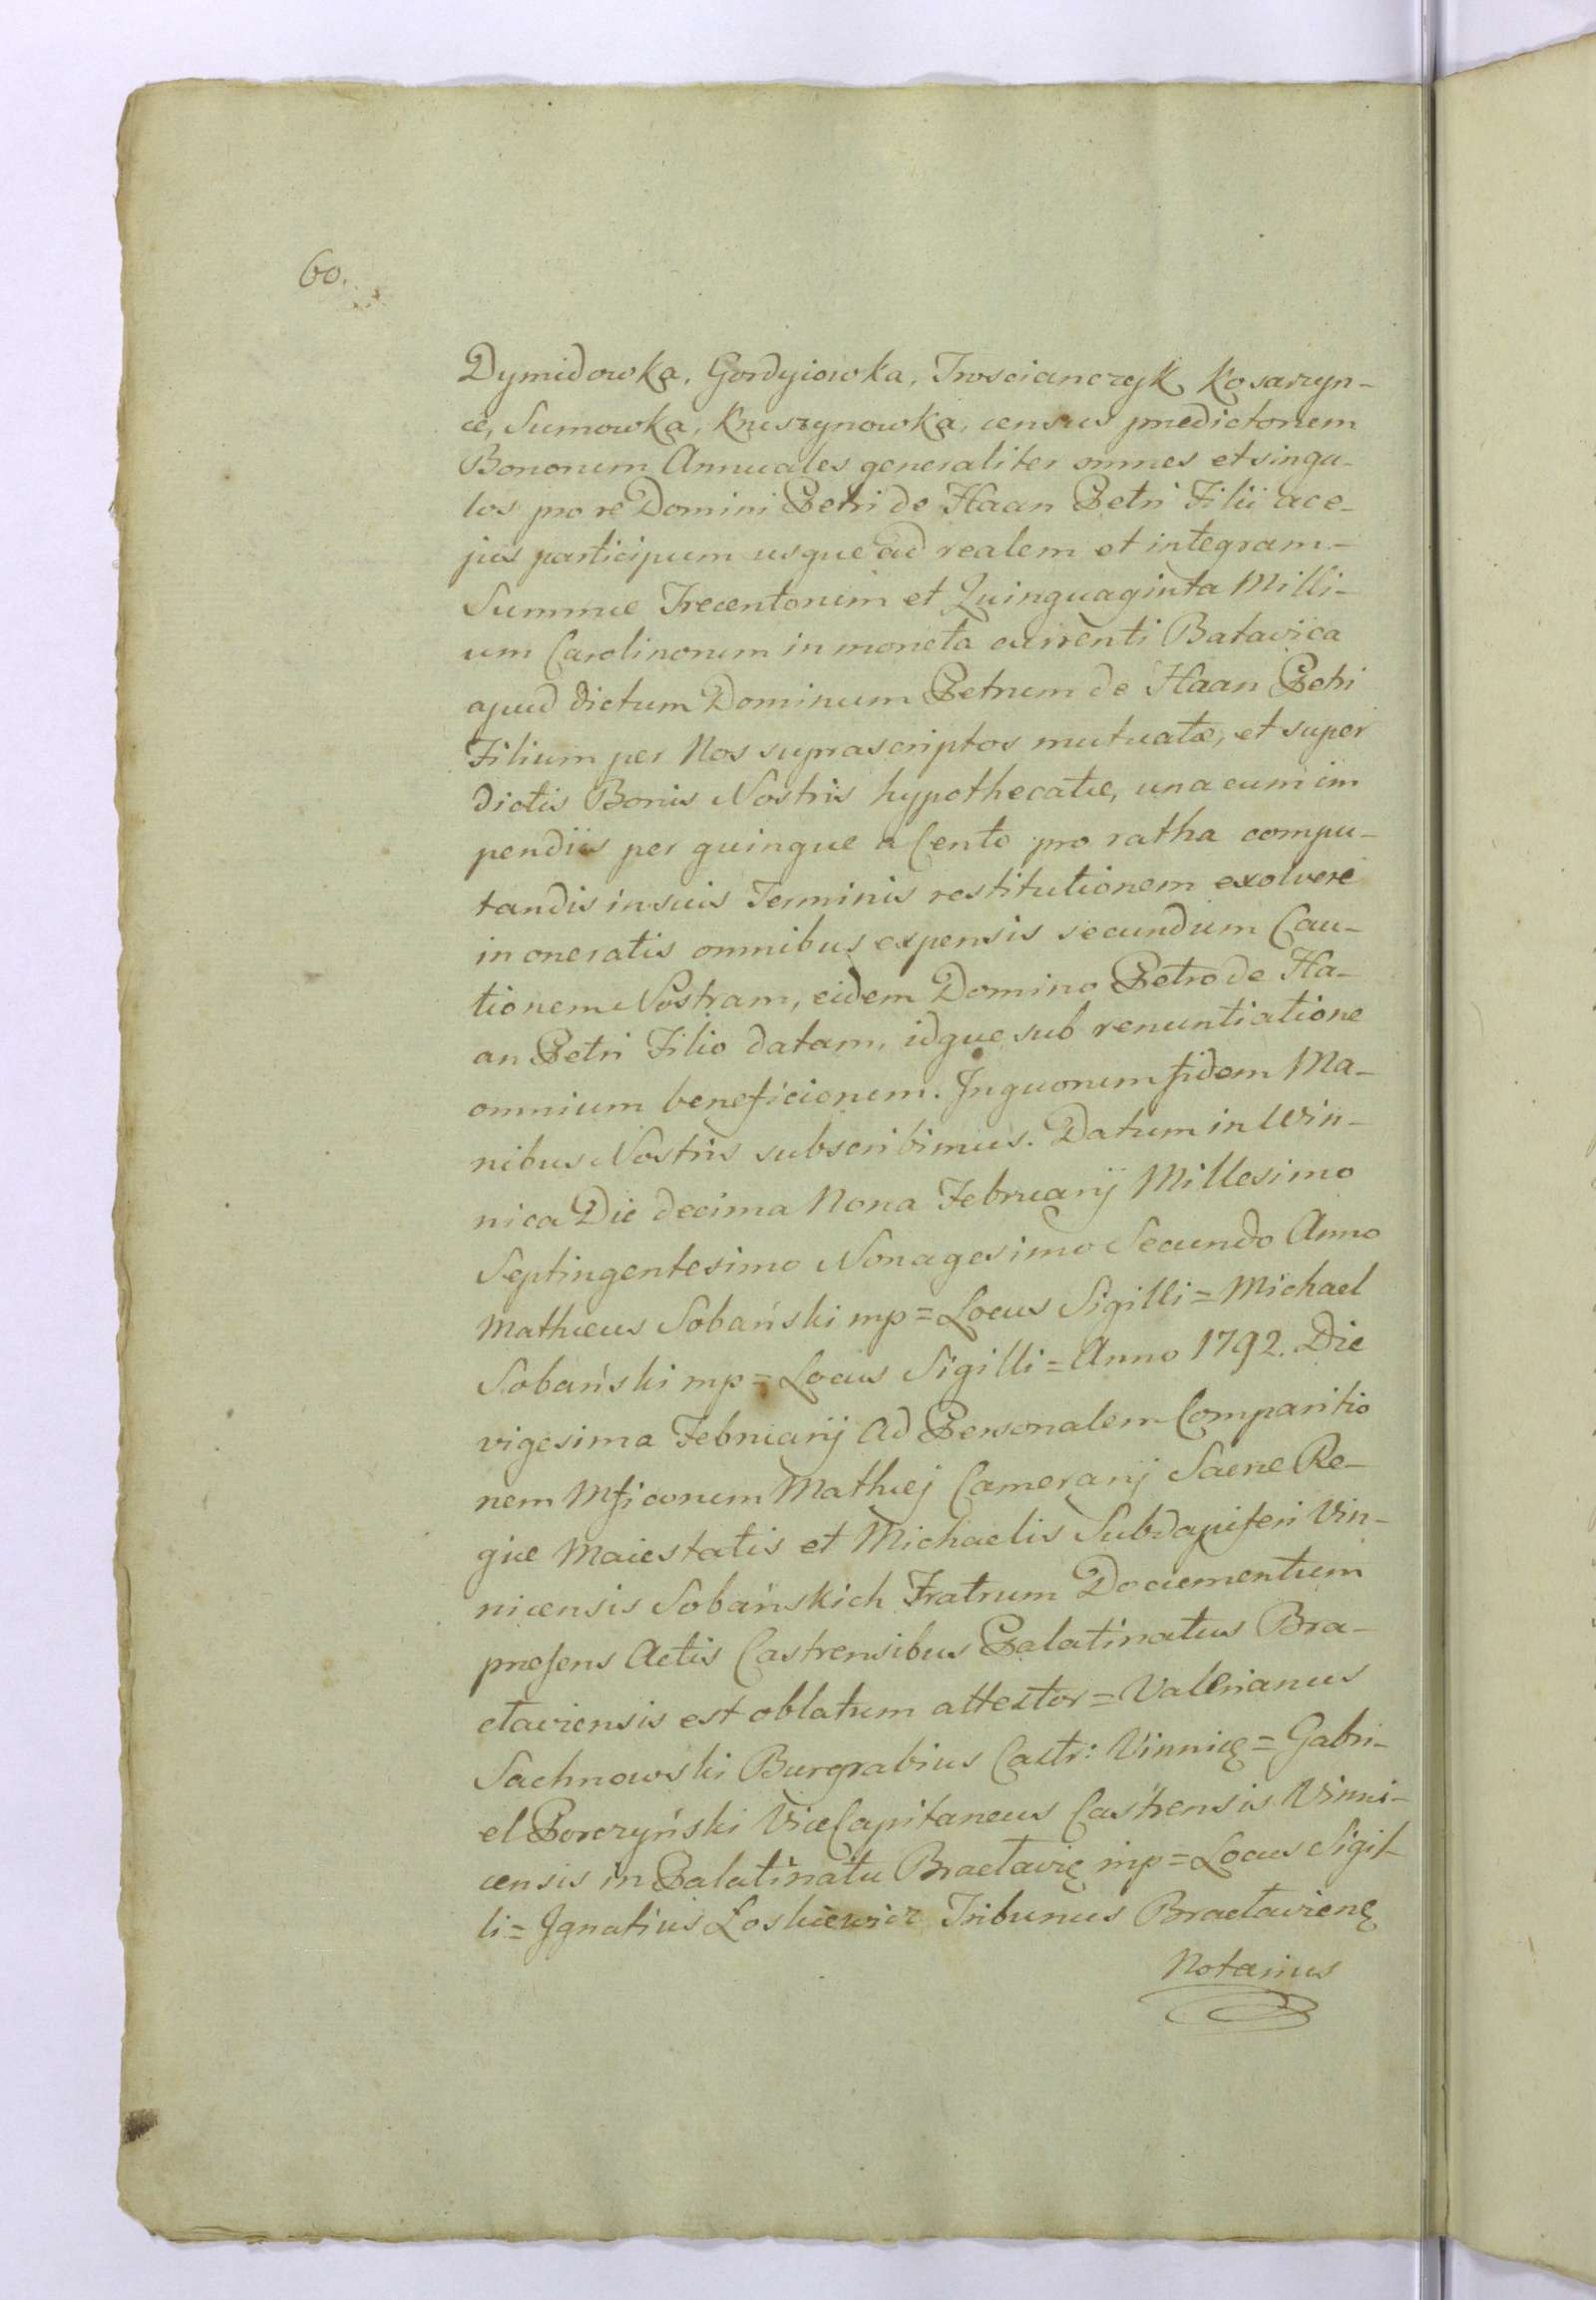 60.
Dymidowka, Gordyiowka, Troscianczyk, Kosarzyn-
ce, Sumowka, Kruszynowka, census prædictorum
Bonorum Annuales generaliter omnes et singu-
los pro re Domini Petri de Haan Petri Filii ac e-
jus participum usque ad realem et integram-
Summæ Trecentorum et Quinquaginta Milli-
um Carolinorum in moneta currenti Batavica
apud dictum Dominum Petrum de Haan Petri
Filium per Nos suprascriptos mutuatæ, et super
dictis Bonis Nostris hypothecatæ, una cum im
pendiis per quinque a Cento pro ratha compu-
tandis in suis Terminis restitutionem exolvere
in oneratis omnibus expensis secundum Cau-
tionem Nostram, eidem Domino Petro de Ha-
an Petri Filio datam, idque sub renuntiatione
omnium beneficiorum. In quorum fidem Ma-
nibus Nostris subscribimus. Datum in Win-
nica Die decima Nona Februarij Millesimo
Septingentesimo Nonagesimo Secundo Anno
Mathæus Sobański mp = Locus Sigilli = Michael
Sobański mp = Locus Sigilli = Anno 1792. Die
vigesima Februarij Ad Personalem Comparitio
nem Mficorum Mathæj Camerarij Sacræ Re-
giæ Maiestatis et Michaelis Subdapiferi Vin-
nicensis Sobańskich Fratrum Documentum
præsens Actis Castrensibus Palatinatus Bra-
claviensis est oblatum attestor = Valerianus
Sachnowski Burgrabius Castr: Vinnicę = Gabri-
el Porczyński ViceCapitaneus Castrensis Vinni-
censis in Palatinatu Braclavię mp = Locus Sigil-
li = Ignatius Łoskiewicz Tribunus Braclavienę
Notarius